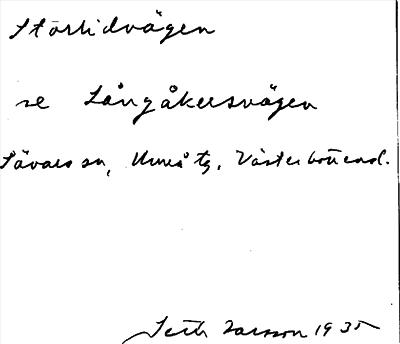 Störtidvägen
se Långåkersvägen
Sävars sn, Umeå tg, Västerbottensl.
Seth Larsson 1935